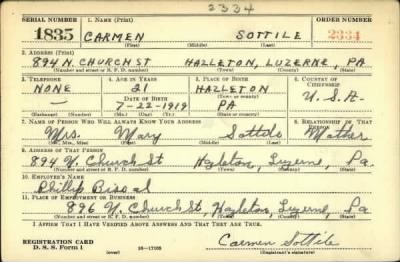 2334
SERIAL NUMBER 1. NAME (Print) ORDER NUMBER
1835 CARMEN SOTTILE 2334
(First) (Middle) (Last)
2. ADDRESS (Print)
894 N. CHURCH ST HAZLETON, LUZERNE, PA
(Number and street or R. F. D. number) (Town) (County) (State)
3. TELEPHONE 4. AGE IN YEARS 5. PLACE OF BIRTH 6. COUNTRY OF CITIZENSHIP
NONE 21 HAZLETON
DATE OF BIRTH (Town or county)
— 7-22-1919 PA U.S.A-
(Exchange) (Number) (Mo.) (Day) (Yr.) (State or country)
7. NAME OF PERSON WHO WILL ALWAYS KNOW YOUR ADDRESS 8. RELATIONSHIP OF THAT PERSON
Mrs. Mary Mother
(Mr., Mrs., Miss) (First) (Middle) (Last)
9. ADDRESS OF THAT PERSON
894 N. Church St Hazleton, Luzerne, Pa.
(Number and street or R. F. D. number) (Town) (County) (State)
10. EMPLOYER'S NAME
Phillip
11. PLACE OF EMPLOYMENT OR BUSINESS
896 N. Church St, Hazleton, Luzerne, Pa
(Number and street or R. F. D. number) (Town) (County) (State)
I AFFIRM THAT I HAVE VERIFIED ABOVE ANSWERS AND THAT THEY ARE TRUE.
REGISTRATION CARD
D. S. S. Form 1 (over) 16—17105 Carmen Sottile
(Registrant's signature)